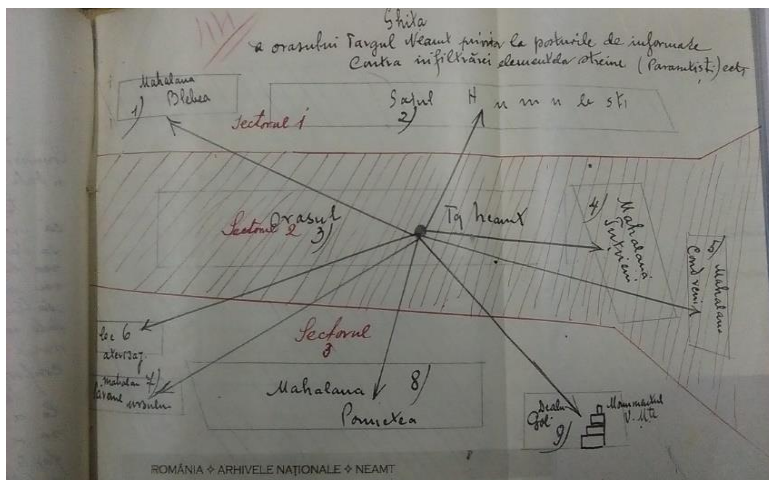 Shita
a orasului Targul Neamt privire la posturile de informate
Contra infiltrărei elementelor streine (Parasutisti) ects
Mahalaua
1) Blebea
Satul Humulesti
2)
Sectorul 1
Orasul Tg Neamt
Sectorul 2 3)
4) Mahalaua
Tutuieni
5) Mahalaua
Condreni
Sectorul
3
loc 6
aterisaj
mahalaua 7)
ursului
Mahalaua 8)
Pometea
Dealu
Gol 9)
Monumentul
V. Mti
ROMÂNIA ✧ ARHIVELE NAȚIONALE ✧ NEAMT